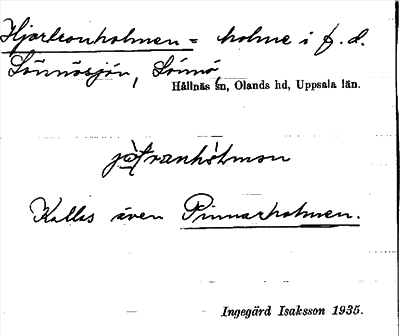 Hjortronholmen = holme i f. d.
Sönnösjön, Sönnö,
Hållnäs sn, Olands hd, Uppsala län.
Kallas även Pinnarholmen.
Ingegärd Isaksson 1935.